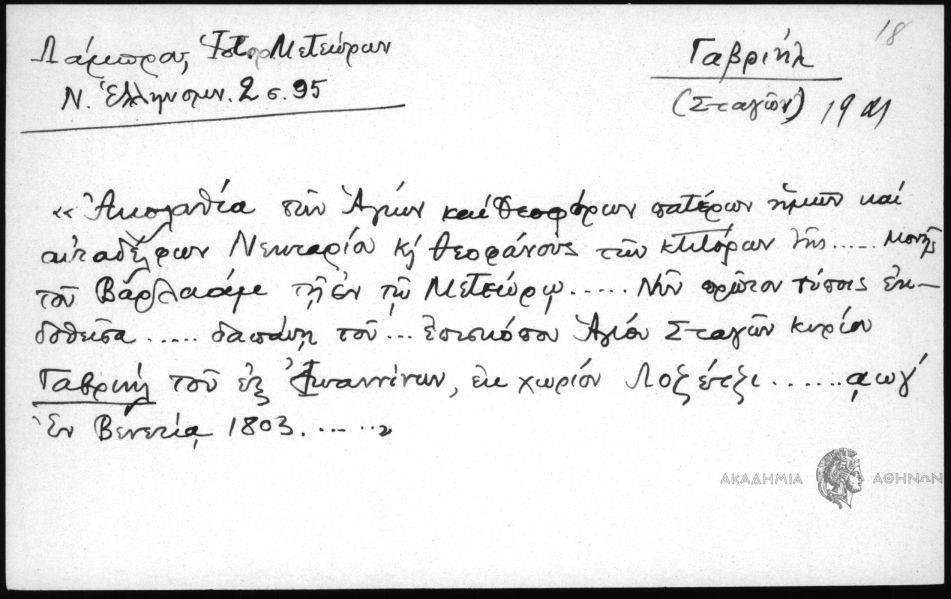 18
Λάμπρος, Ἱστορ. Μετεώρων
Ν. Ἑλληνομν. 2 σ. 95
Γαβριήλ
(Σταγῶν)
«Ἀκολουθία τῶν Ἁγίων καὶ Θεοφόρων πατέρων ἡμῶν καὶ
αὐταδέλφων Νεκταρίου κ Θεοφάνους τῶν κτιτόρων τῆς ..... Μονῆς
τοῦ Βαρλαάμ τῆς ἐν τῷ Μετεώρῳ ..... Νῦν πρῶτον τύποις ἐκ-
δοθεῖσα ..... δαπάνῃ τοῦ ... ἐπισκόπου Ἁγίου Σταγῶν κυρίου
Γαβριήλ τοῦ ἐξ Ἰωαννίνων, ἐκ χωρίου Λοζέτζι ....... ͵αωγ΄
Ἐν Βενετίᾳ 1803. ..... »
ΑΚΑΔΗΜΙΑ ΑΘΗΝΩΝ